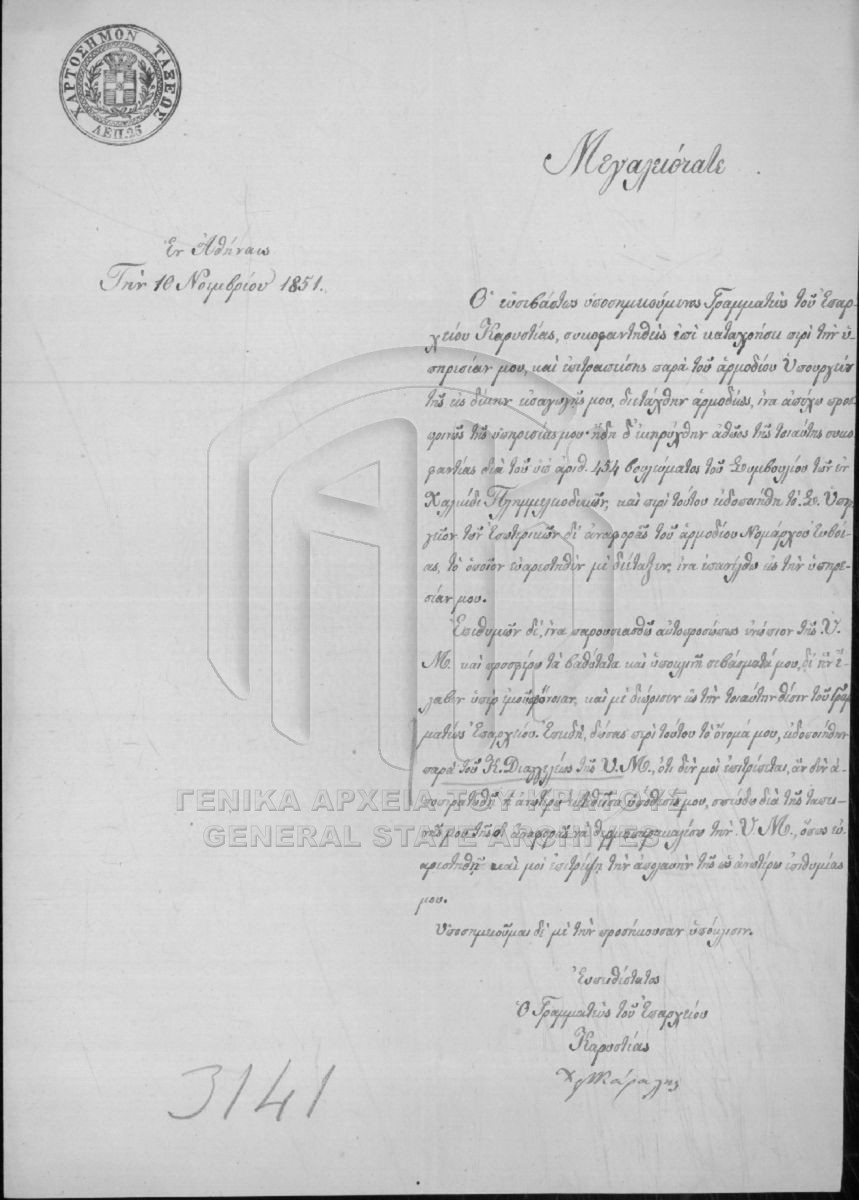 ΧΑΡΤΟΣΗΜΟΝ ΤΑΞΕΩΣ
ΛΕΠ. 25
Μεγαλειότατε
Ἐν Ἀθήναις
Τὴν 10 Νοεμβρίου 1851.
Ὁ εὐσεβάστως ὑποσημειούμενος Γραμματεὺς τοῦ Ἐπαρ-
χείου Καρυστίας, συκοφαντηθεὶς ἐπὶ καταχρήσει περὶ τὴν ὑ-
πηρεσίαν μου, καὶ ἐπιτραπείσης παρὰ τοῦ ἁρμοδίου Ὑπουργείου
τῆς εἰς δίκην εἰσαγωγῆς μου, διετάχθην ἁρμοδίως, ἵνα ἀπέχω προσ-
ρινῶς τῆς ὑπηρεσίας μου· ἤδη δ' ἐκηρύχθην ἀθῶος τῆς τοιαύτης συκο-
φαντίας διὰ τοῦ ὑπ' ἀριθ. 454 βουλεύματος τοῦ Συμβουλίου τῶν ἐν
Χαλκίδι Πλημμελειοδικῶν, καὶ περὶ τούτου εἰδοποιήθη τὸ Σ. Ὑπουρ-
γεῖον τῶν Ἐσωτερικῶν δι' ἀναφορᾶς τοῦ ἁρμοδίου Νομάρχου Εὐβοί-
ας, τὸ ὁποῖον εὐαρεστηθὲν μὲ διέταξεν, ἵνα ἐπανέλθω εἰς τὴν ὑπηρε-
σίαν μου.
Ἐπιθυμῶν δὲ, ἵνα παρουσιασθῶ αὐτοπροσώπως ἐνώπιον τῆς Υ.
Μ. καὶ προσφέρω τὰ βαθύτατα καὶ ὑποκλινῆ σεβάσματά μου, δι' ἣν ἔ-
λαβεν ὑπὲρ ἐμοῦ πρόνοιαν, καὶ μὲ διώρισεν εἰς τὴν τοιαύτην θέσιν τοῦ Γραμ-
ματέως Ἐπαρχείου. Ἐπειδὴ, δώσας περὶ τούτου τὸ ὄνομά μου, εἰδοποιήθην
παρὰ τοῦ Κ. Διαγγελέως τῆς Υ. Μ., ὅτι δὲν μοὶ ἐπιτρέπεται, ἂν δὲν ἀ-
ποπερατωθῇ ἡ ἀνωτέρω ἐκτεθεῖσα ὑπόθεσίς μου, σπεύδω διὰ τῆς ταπει-
νῆς μου ταύτης ἀναφορᾶς νὰ θερμοπαρακαλέσω τὴν Υ. Μ., ὅπως εὐ-
αρεστηθῇ καὶ μοὶ ἐπιτρέψῃ τὴν ἀπόλαυσιν τῆς ὡς ἀνωτέρω ἐπιθυμίας
μου.
Ὑποσημειοῦμαι δὲ μὲ τὴν προσήκουσαν ὑπόκλισιν.
Εὐπειθέστατος
Ὁ Γραμματεὺς τοῦ Ἐπαρχείου
Καρυστίας
3141
ΓΕΝΙΚΑ ΑΡΧΕΙΑ ΤΟΥ ΚΡΑΤΟΥΣ
GENERAL STATE ARCHIVES